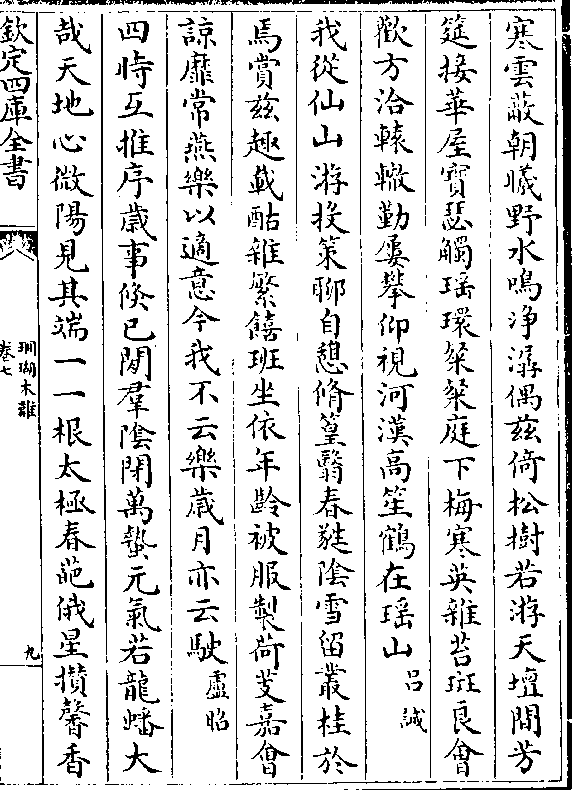 寒雲蔽朝曦野水鳴淨潺偶兹倚松樹若游天壇間芳
筵接華屋寳瑟觸瑶環粲粲庭下梅寒英雜苔斑良會
歡方洽轅轍勤屢攀仰視河漢高笙鶴在瑶山吕誠
我從仙山游投策聊自憩脩篁翳春蕤陰雪留叢桂於
焉賞兹趣載酤雜繁饎班坐依年齡被服製荷芰嘉會
諒靡常燕樂以適意今我不云樂歲月亦云駛盧昭
四時互推序歲事倏已閴羣陰閉萬蟄元氣若龍蟠大
哉天地心微陽見其端一一根太極春葩俄星攅馨香
欽定四庫全書
珊瑚木難
卷七
九